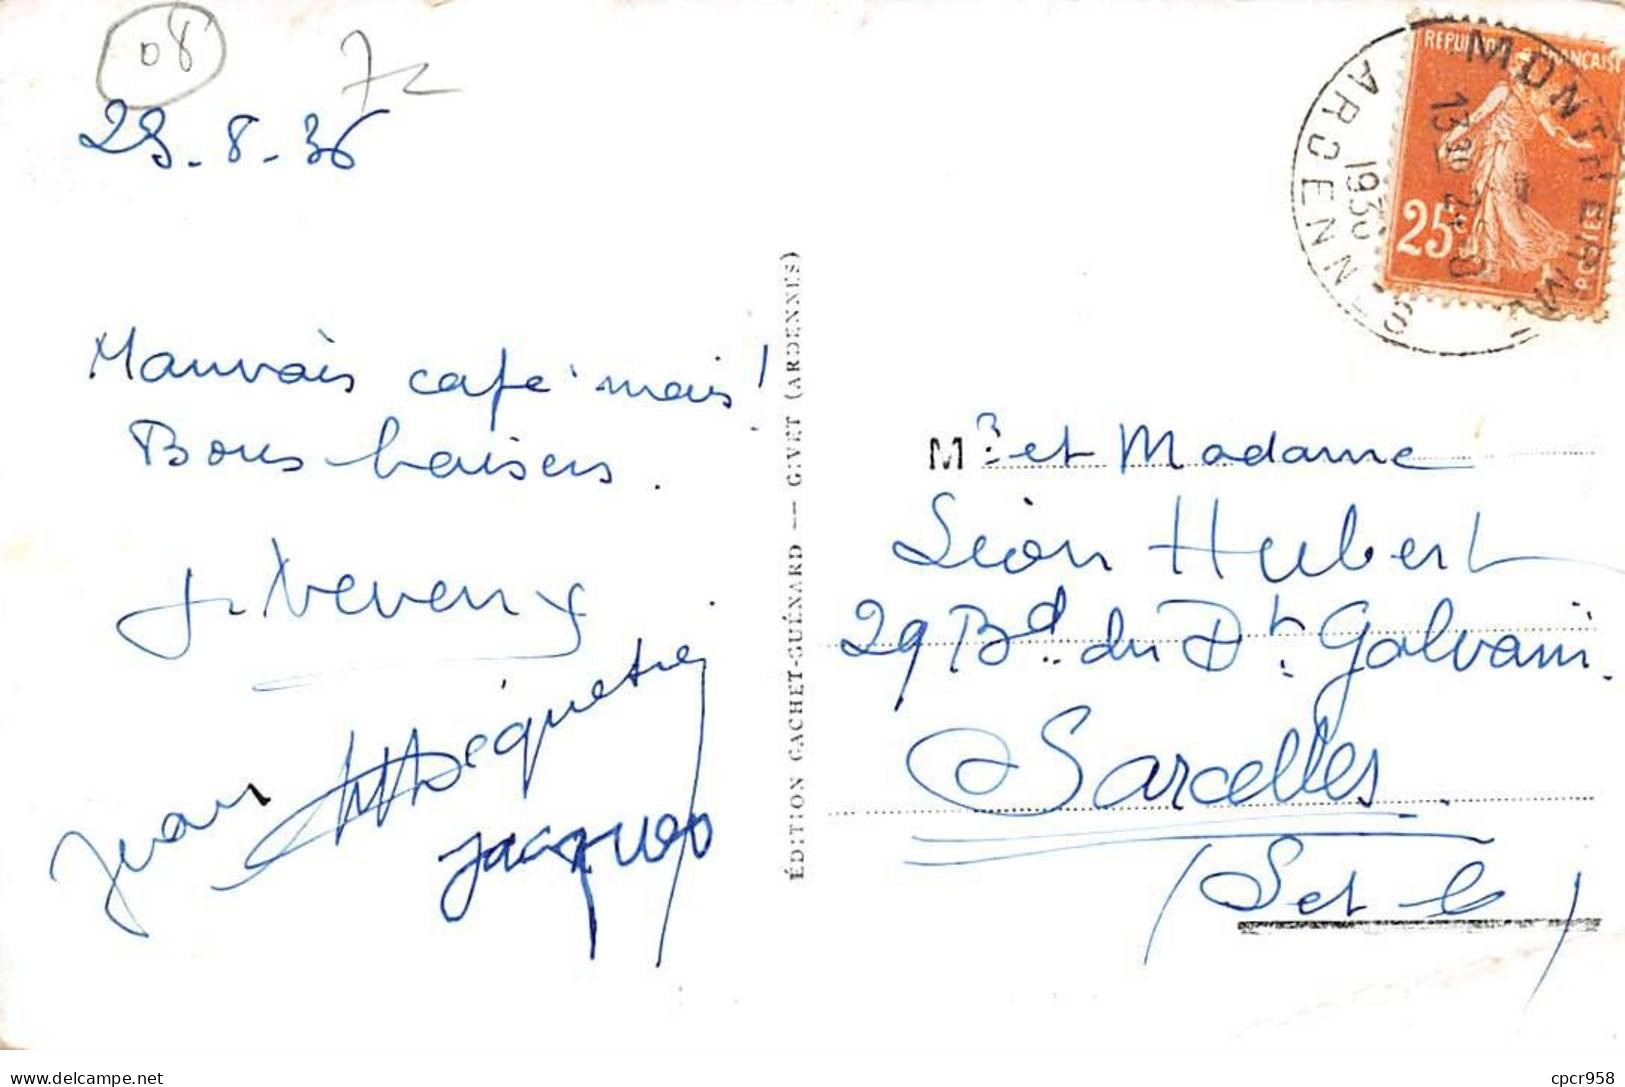 08
72
29-8-36
Mauvais café mais!
Bons baisers.
Jean
Jacques
ÉDITION GACHET-GUÉNARD — GIVET (ARDENNES)
RÉPUBLIQUE FRANÇAISE
25c POSTES
MONTHERMÉ
ARDENNES
13 30
1936
Mr et Madame
Léon Hubert
29 Bd du Dr Galvani.
Sarcelles.
(S et O)
cpcr958